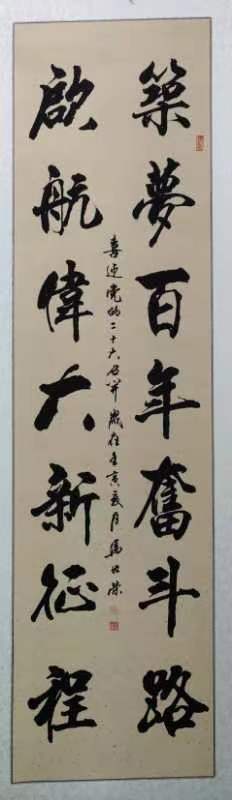 築夢百年奮斗路
喜迎党的二十大召開 歲在壬寅夏月
啟航偉大新征程